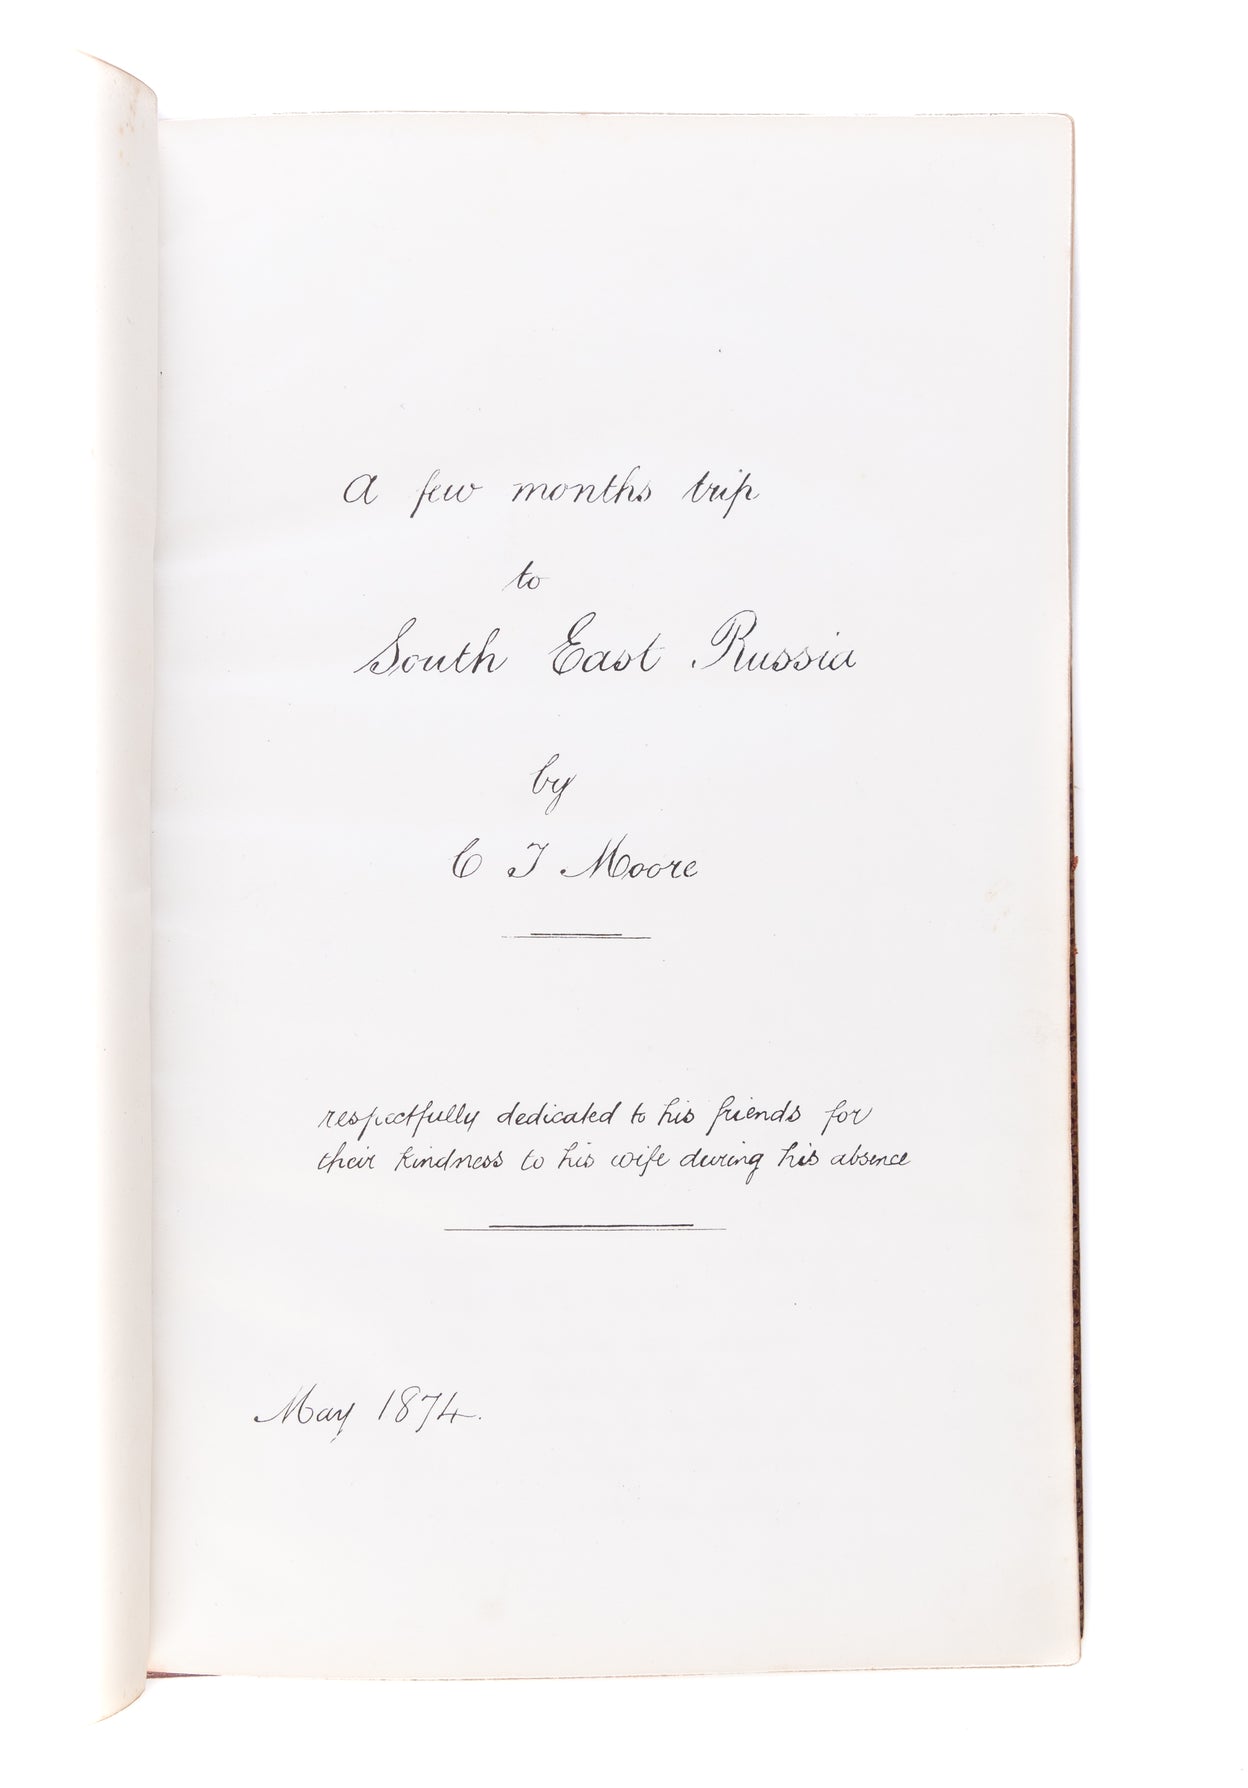 A few months trip
to
South East Russia
by
C J Moore
respectfully dedicated to his friends for
their kindness to his wife during his absence
May 1874.